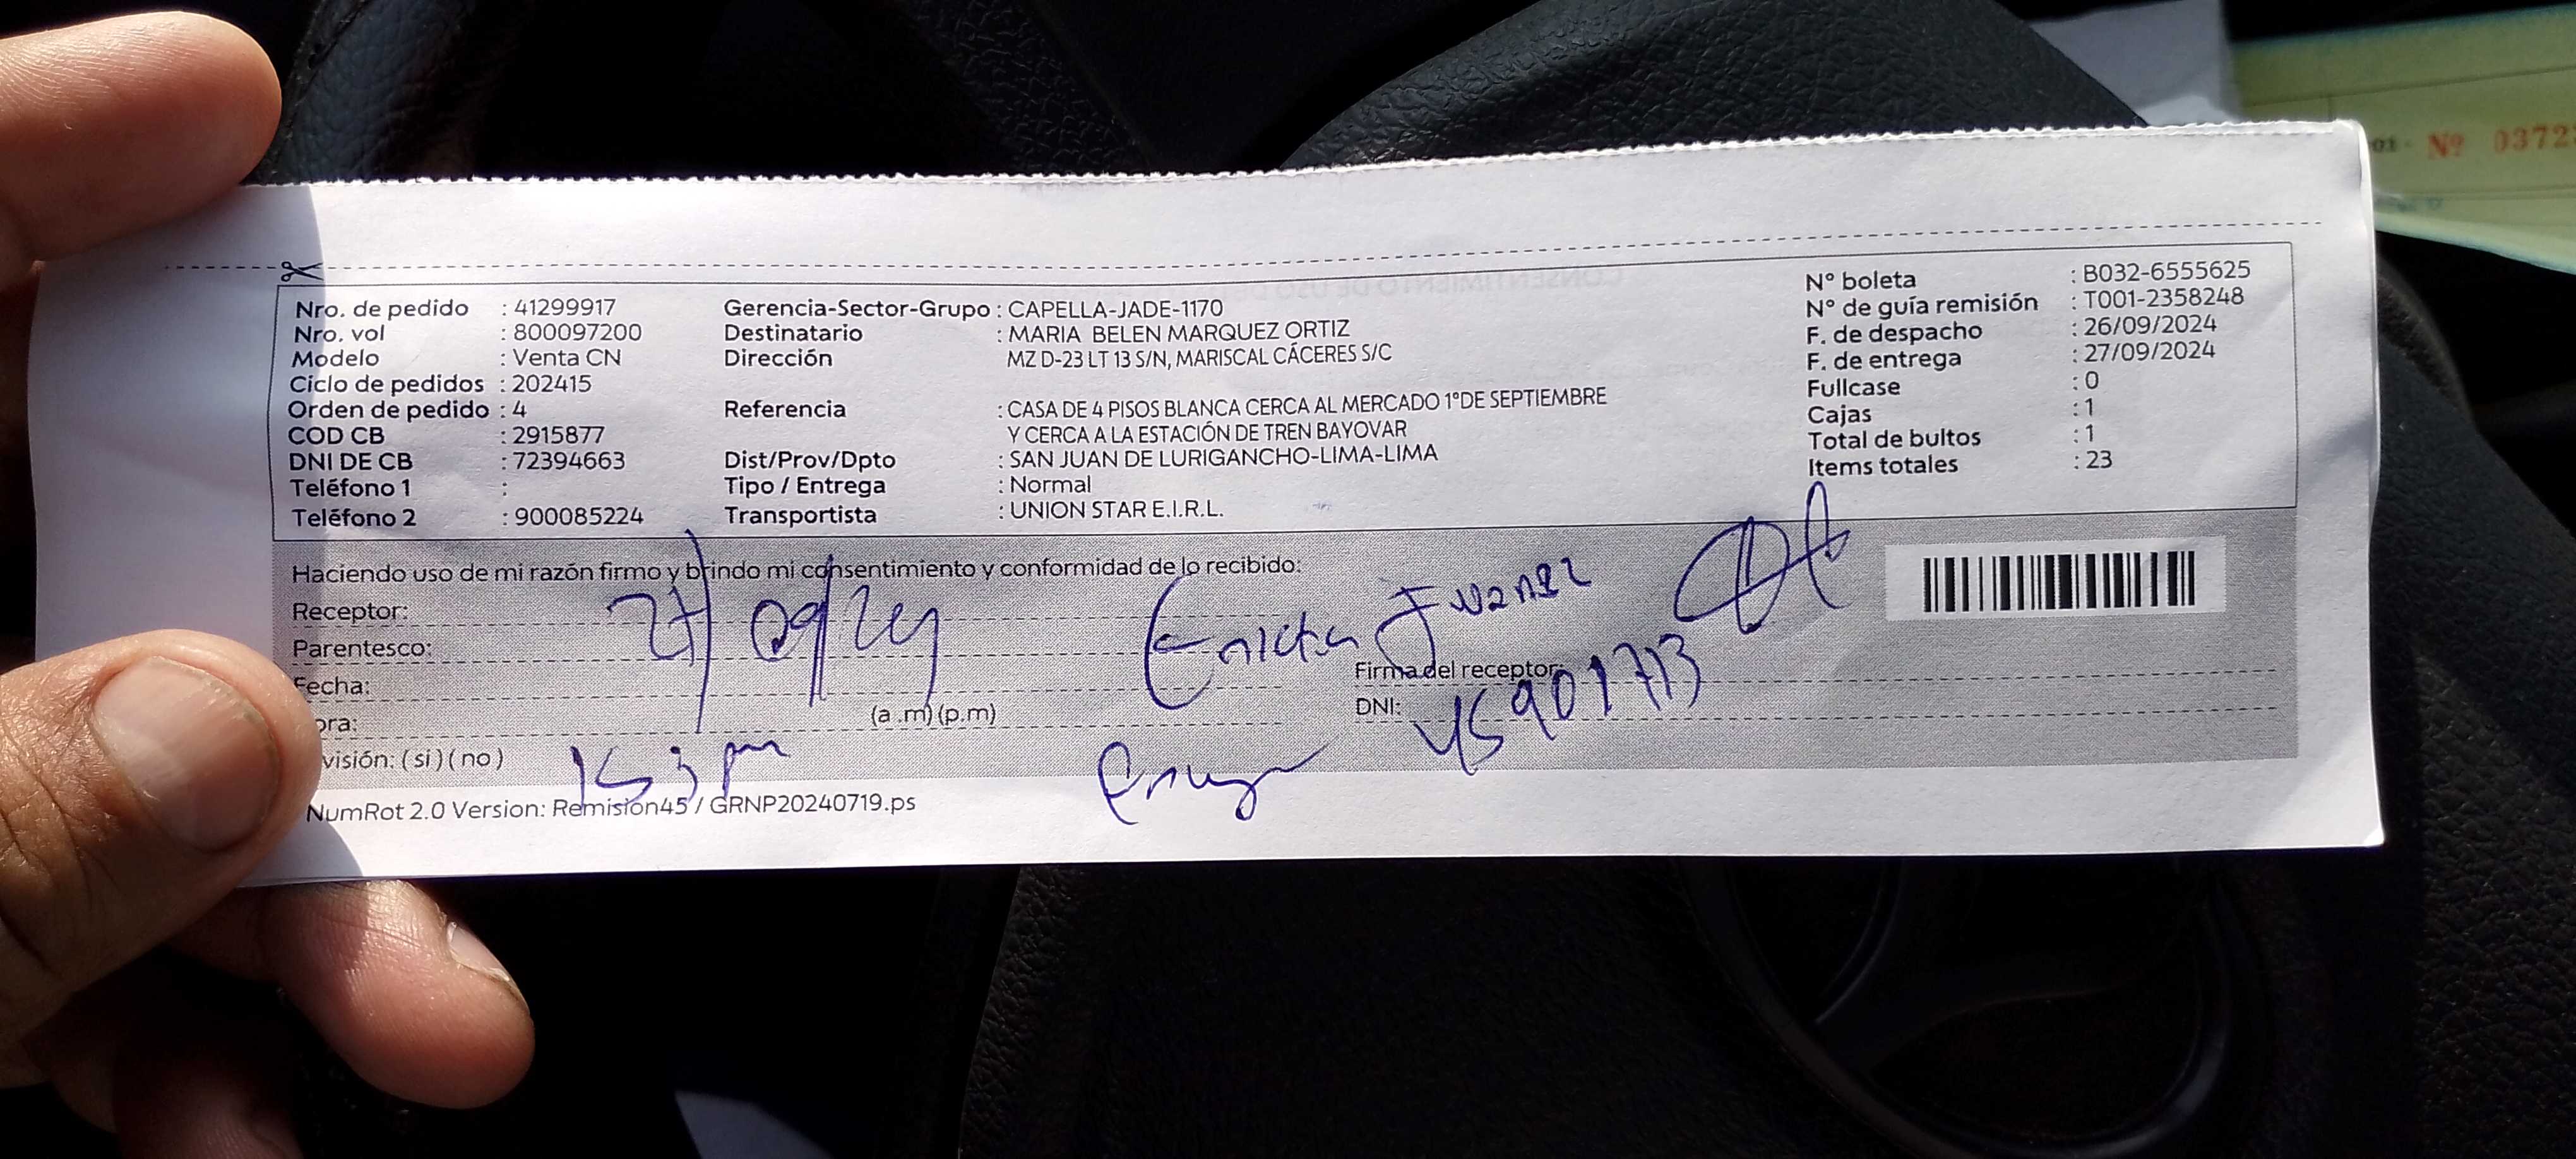 01- Nº 0372
Nro. de pedido : 41299917
Nro. vol : 800097200
Modelo : Venta CN
Ciclo de pedidos : 202415
Orden de pedido : 4
COD CB : 2915877
DNI DE CB : 72394663
Teléfono 1 :
Teléfono 2 : 900085224
Gerencia-Sector-Grupo : CAPELLA-JADE-1170
Destinatario : MARIA BELEN MARQUEZ ORTIZ
Dirección MZ D-23 LT 13 S/N, MARISCAL CÁCERES S/C
Referencia : CASA DE 4 PISOS BLANCA CERCA AL MERCADO 1°DE SEPTIEMBRE
Y CERCA A LA ESTACIÓN DE TREN BAYOVAR
Dist/Prov/Dpto : SAN JUAN DE LURIGANCHO-LIMA-LIMA
Tipo / Entrega : Normal
Transportista : UNION STAR E.I.R.L.
N° boleta : B032-6555625
N° de guía remisión : T001-2358248
F. de despacho : 26/09/2024
F. de entrega : 27/09/2024
Fullcase : 0
Cajas : 1
Total de bultos : 1
Items totales : 23
Haciendo uso de mi razón firmo y brindo mi consentimiento y conformidad de lo recibido:
Receptor:
27/09/24
Parentesco:
Fecha:
ora: (a .m) (p.m)
Firma del receptor:
DNI: 45901713
visión: ( si ) ( no ) 153 pm
NumRot 2.0 Version: Remision45 / GRNP20240719.ps